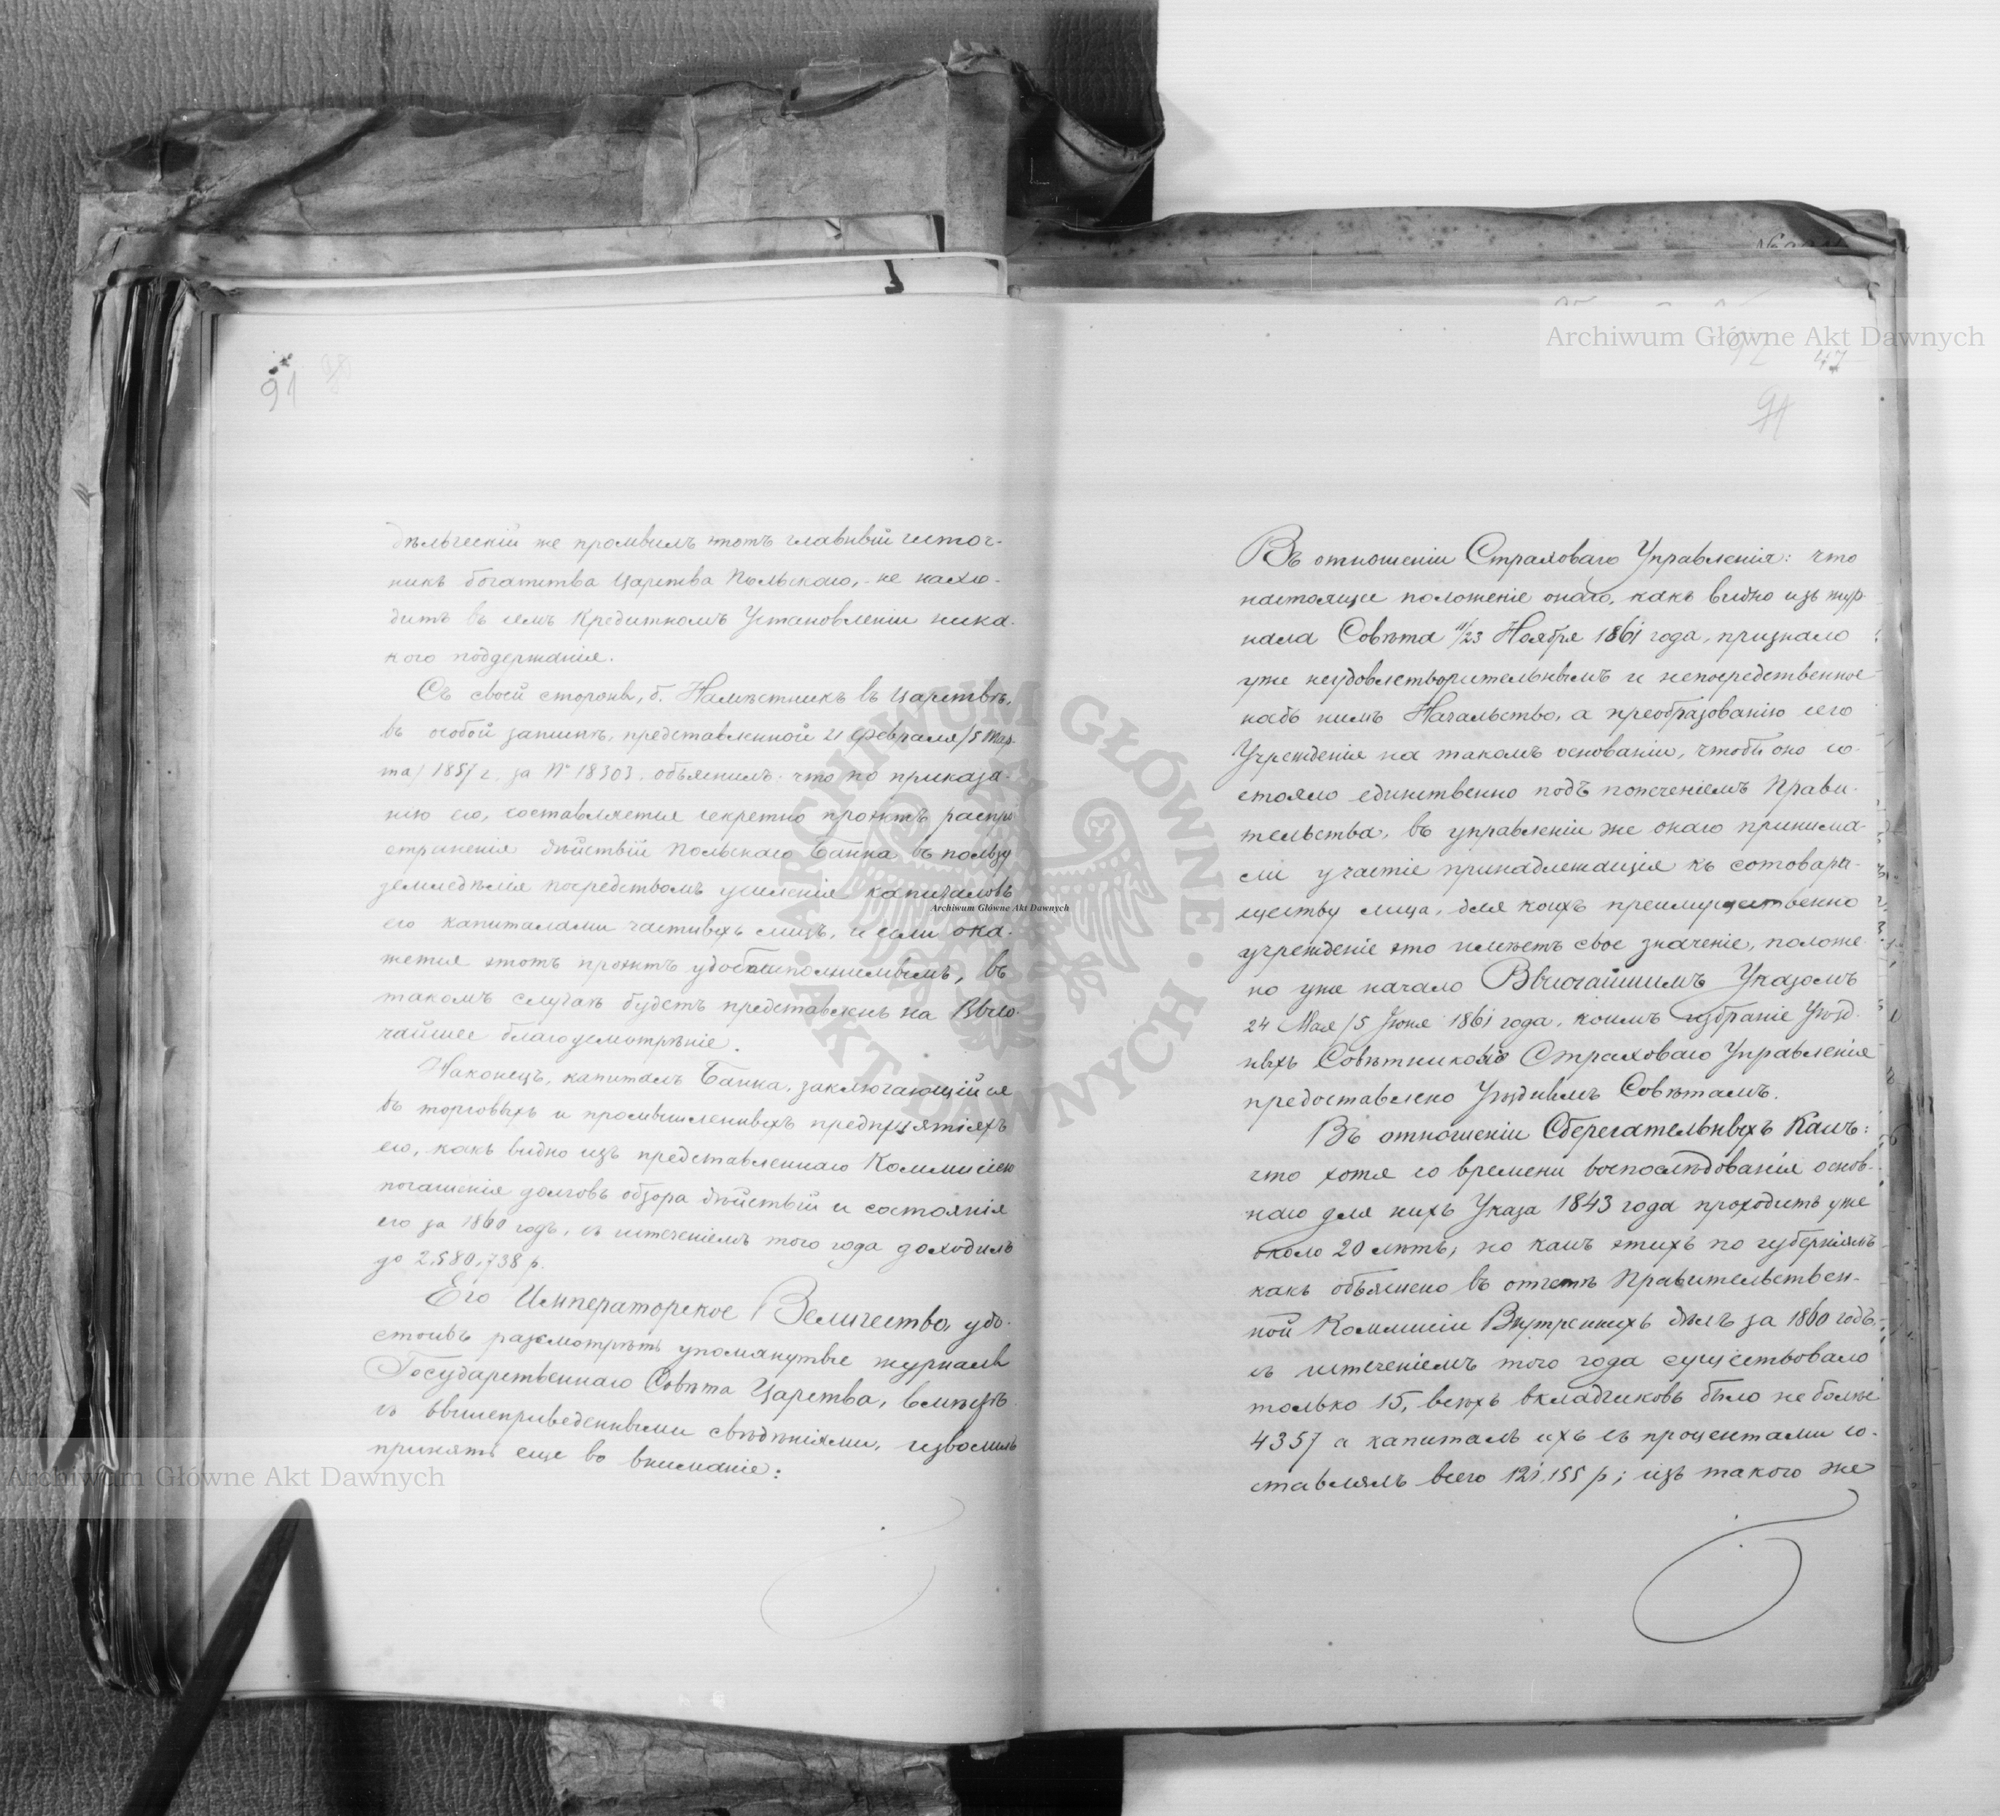 91
дѣльческій же промыселъ этотъ главный источ-
никъ богатства Царства Польскаго, - не нахо-
дитъ въ семъ Кредитномъ Установленіи ника-
кого поддержанія.
Съ своей стороны, б. Намѣстникъ въ Царствѣ,
въ особой запискѣ, представленной 21 Февраля /5 Мар-
та/ 1857 г. за № 18303, объяснилъ: что по приказа-
нію его, составляется секретно проэктъ распро
страненія дѣйствій Польскаго Банка въ пользу
земледѣлія посредствомъ усиленія капиталовъ
его капиталами частныхъ лицъ, и если ока-
жется этотъ проэктъ удобоисполнимымъ, въ
такомъ случаѣ будетъ представленъ на Высо-
чайшее благоусмотрѣніе.
Наконецъ, капиталъ Банка, заключающійся
въ торговыхъ и промышленныхъ предпріятіяхъ
его, какъ видно изъ представленнаго Коммисіею
погашенія долговъ обзора дѣйствій и состоянія
его за 1860 годъ, съ истеченіемъ того года доходилъ
до 2,580,738 р.
Его Императорское Величество, удо-
стоивъ разсмотрѣть упомянутые журналы
Государственнаго Совѣта Царства, вмѣстѣ
съ вышеприведенными свѣдѣніями, изволилъ
принять еще во вниманіе:
92
47
91
Въ отношеніи Страховаго Управленія: что
настоящее положеніе онаго, какъ видно изъ жур-
нала Совѣта 11/23 Ноября 1861 года, признало
уже неудовлетворительнымъ и непосредственное
надъ нимъ Начальство, а преобразованію сего
Учрежденія на такомъ основаніи, чтобы оно со-
стояло единственно подъ попеченіемъ Прави-
тельства, въ управленіи же онаго принима-
ли участіе принадлежащія къ сотовари-
ществу лица, для коихъ преимущественно
учрежденіе это имѣетъ свое значеніе, положе
но уже начало Высочайшимъ Указомъ
24 Мая /5 Іюня 1861 года, коимъ избраніе Уѣзд-
ныхъ Совѣтниковъ Страховаго Управленія
предоставлено Уѣзднымъ Совѣтамъ.
Въ отношеніи Сберегательныхъ Кассъ:
что хотя со времени воспослѣдованія основ-
наго для нихъ Указа 1843 года проходитъ уже
около 20 лѣтъ, но кассъ этихъ по губерніямъ
какъ объяснено въ отчетѣ Правительствен-
ной Коммисіи Внутреннихъ дѣлъ за 1860 годъ,
съ истеченіемъ того года существовало
только 15, всѣхъ вкладчиковъ было не болѣе
4357 а капиталъ ихъ съ процентами со-
ставлялъ всего 121,155 р; изъ такого же
Archiwum Główne Akt Dawnych
Archiwum Główne Akt Dawnych
Archiwum Główne Akt Dawnych
ARCHIWUM GŁÓWNE AKT DAWNYCH